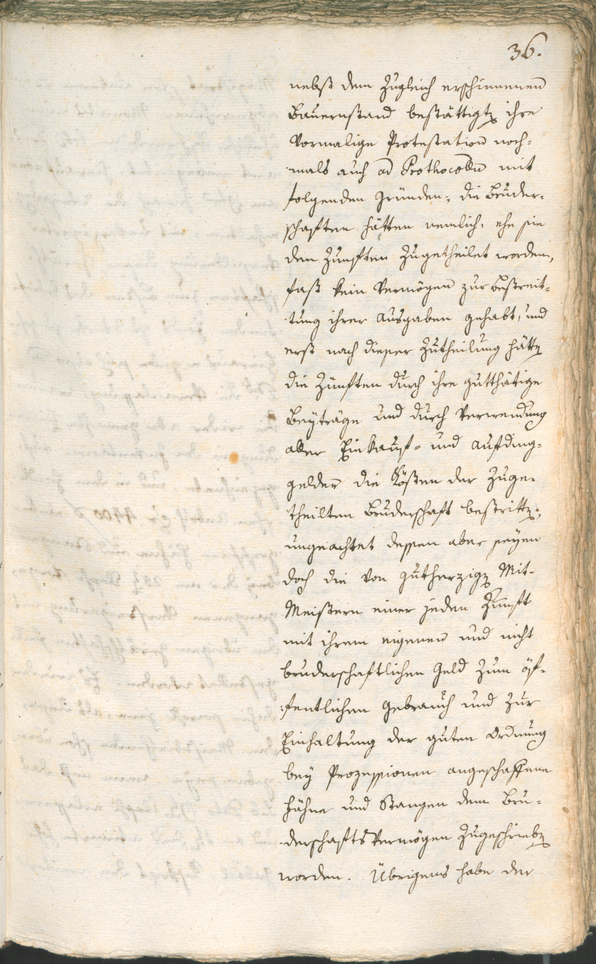 36.
nebst dem zugleich erschienenen
Bauernstand bestättigte ihre
vormalige Protestation noch¬
mals auch ad Prothocollum mit
folgenden Gründen: die Bruder¬
schaften hätten nemlich, ehe sie
den Zünften zugetheilet worden,
fast kein Vermögen zur Bestreit¬
tung ihrer Ausgaben gehabt, und
erst nach dieser Zutheilung hätten
die Zünften durch ihre gutthätige
Beyträge und durch Verwendung
aller Einkauf- und Aufding¬
gelder die Kösten der zuge¬
theilten Bruderschaft bestritten;
ungeachtet dessen aber seyen
doch die von gutherzigen Mit¬
Meistern einer jeden Zunft
mit ihrem eigenen und nicht
bruderschaftlichen Geld zum öf¬
fentlichen Gebrauch und zur
Einhaltung der guten Ordnung
bey Prozessionen angeschaffene
Fähne und Stangen dem Bru¬
derschaftsvermögen zugeschrieben
worden. Übrigens habe der